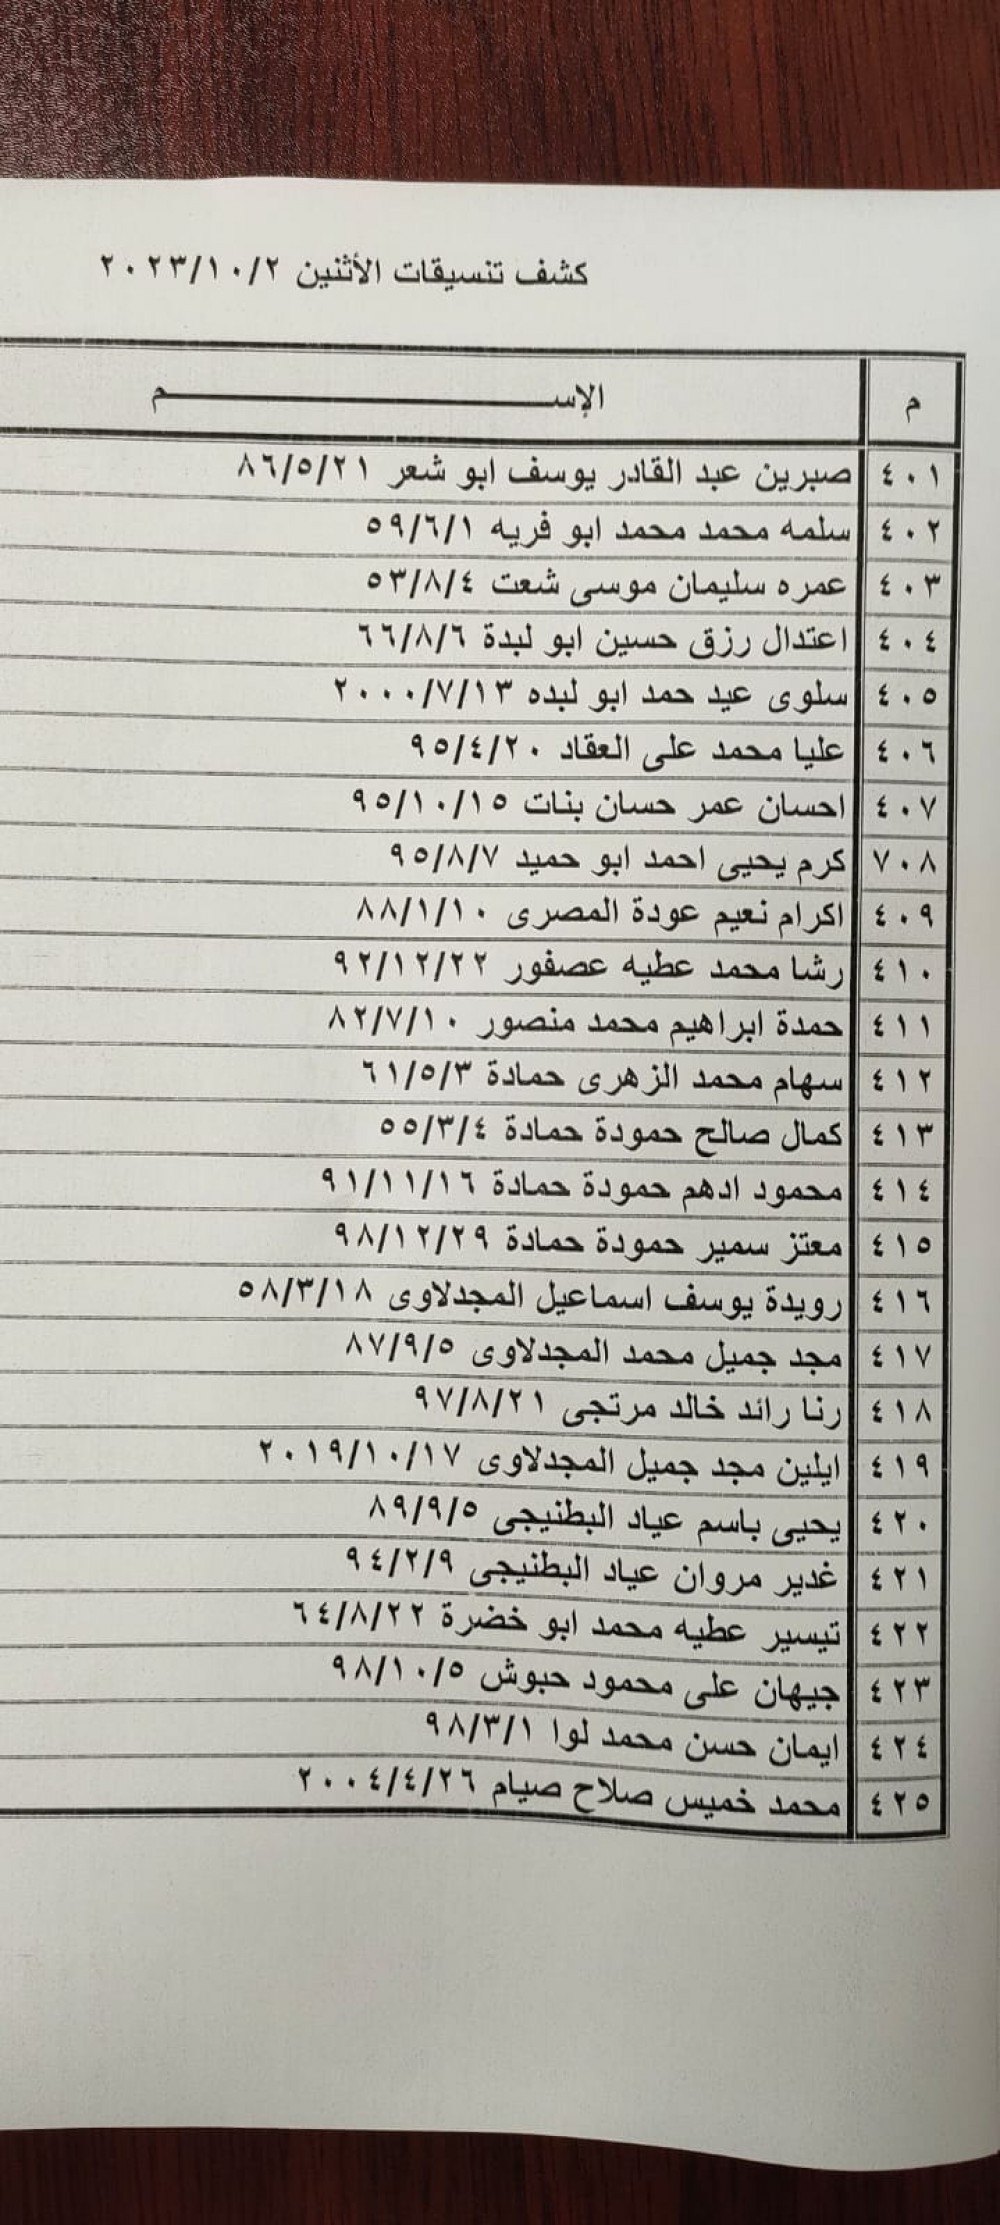 كشف تنسيقات الأثنين ٢٠٢٣/١٠/٢
م الإســـــــــــم
٤٠١ صبرين عبد القادر يوسف ابو شعر ٨٦/٥/٢١
٤٠٢ سلمه محمد محمد ابو فريه ٥٩/٦/١
٤٠٣ عمره سليمان موسى شعت ٥٣/٨/٤
٤٠٤ اعتدال رزق حسين ابو لبدة ٦٦/٨/٦
٤٠٥ سلوى عيد حمد ابو لبده ٢٠٠٠/٧/١٣
٤٠٦ عليا محمد على العقاد ٩٥/٤/٢٠
٤٠٧ احسان عمر حسان بنات ٩٥/١٠/١٥
٧٠٨ كرم يحيى احمد ابو حميد ٩٥/٨/٧
٤٠٩ اكرام نعيم عودة المصرى ٨٨/١/١٠
٤١٠ رشا محمد عطيه عصفور ٩٢/١٢/٢٢
٤١١ حمدة ابراهيم محمد منصور ٨٢/٧/١٠
٤١٢ سهام محمد الزهرى حمادة ٦١/٥/٣
٤١٣ كمال صالح حمودة حمادة ٥٥/٣/٤
٤١٤ محمود ادهم حمودة حمادة ٩١/١١/١٦
٤١٥ معتز سمير حمودة حمادة ٩٨/١٢/٢٩
٤١٦ رويدة يوسف اسماعيل المجدلاوى ٥٨/٣/١٨
٤١٧ مجد جميل محمد المجدلاوى ٨٧/٩/٥
٤١٨ رنا رائد خالد مرتجى ٩٧/٨/٢١
٤١٩ ايلين مجد جميل المجدلاوى ٢٠١٩/١٠/١٧
٤٢٠ يحيى باسم عياد البطنيجى ٨٩/٩/٥
٤٢١ غدير مروان عياد البطنيجى ٩٤/٢/٩
٤٢٢ تيسير عطيه محمد ابو خضرة ٦٤/٨/٢٢
٤٢٣ جيهان على محمود حبوش ٩٨/١٠/٥
٤٢٤ ايمان حسن محمد لوا ٩٨/٣/١
٤٢٥ محمد خميس صلاح صيام ٢٠٠٤/٤/٢٦